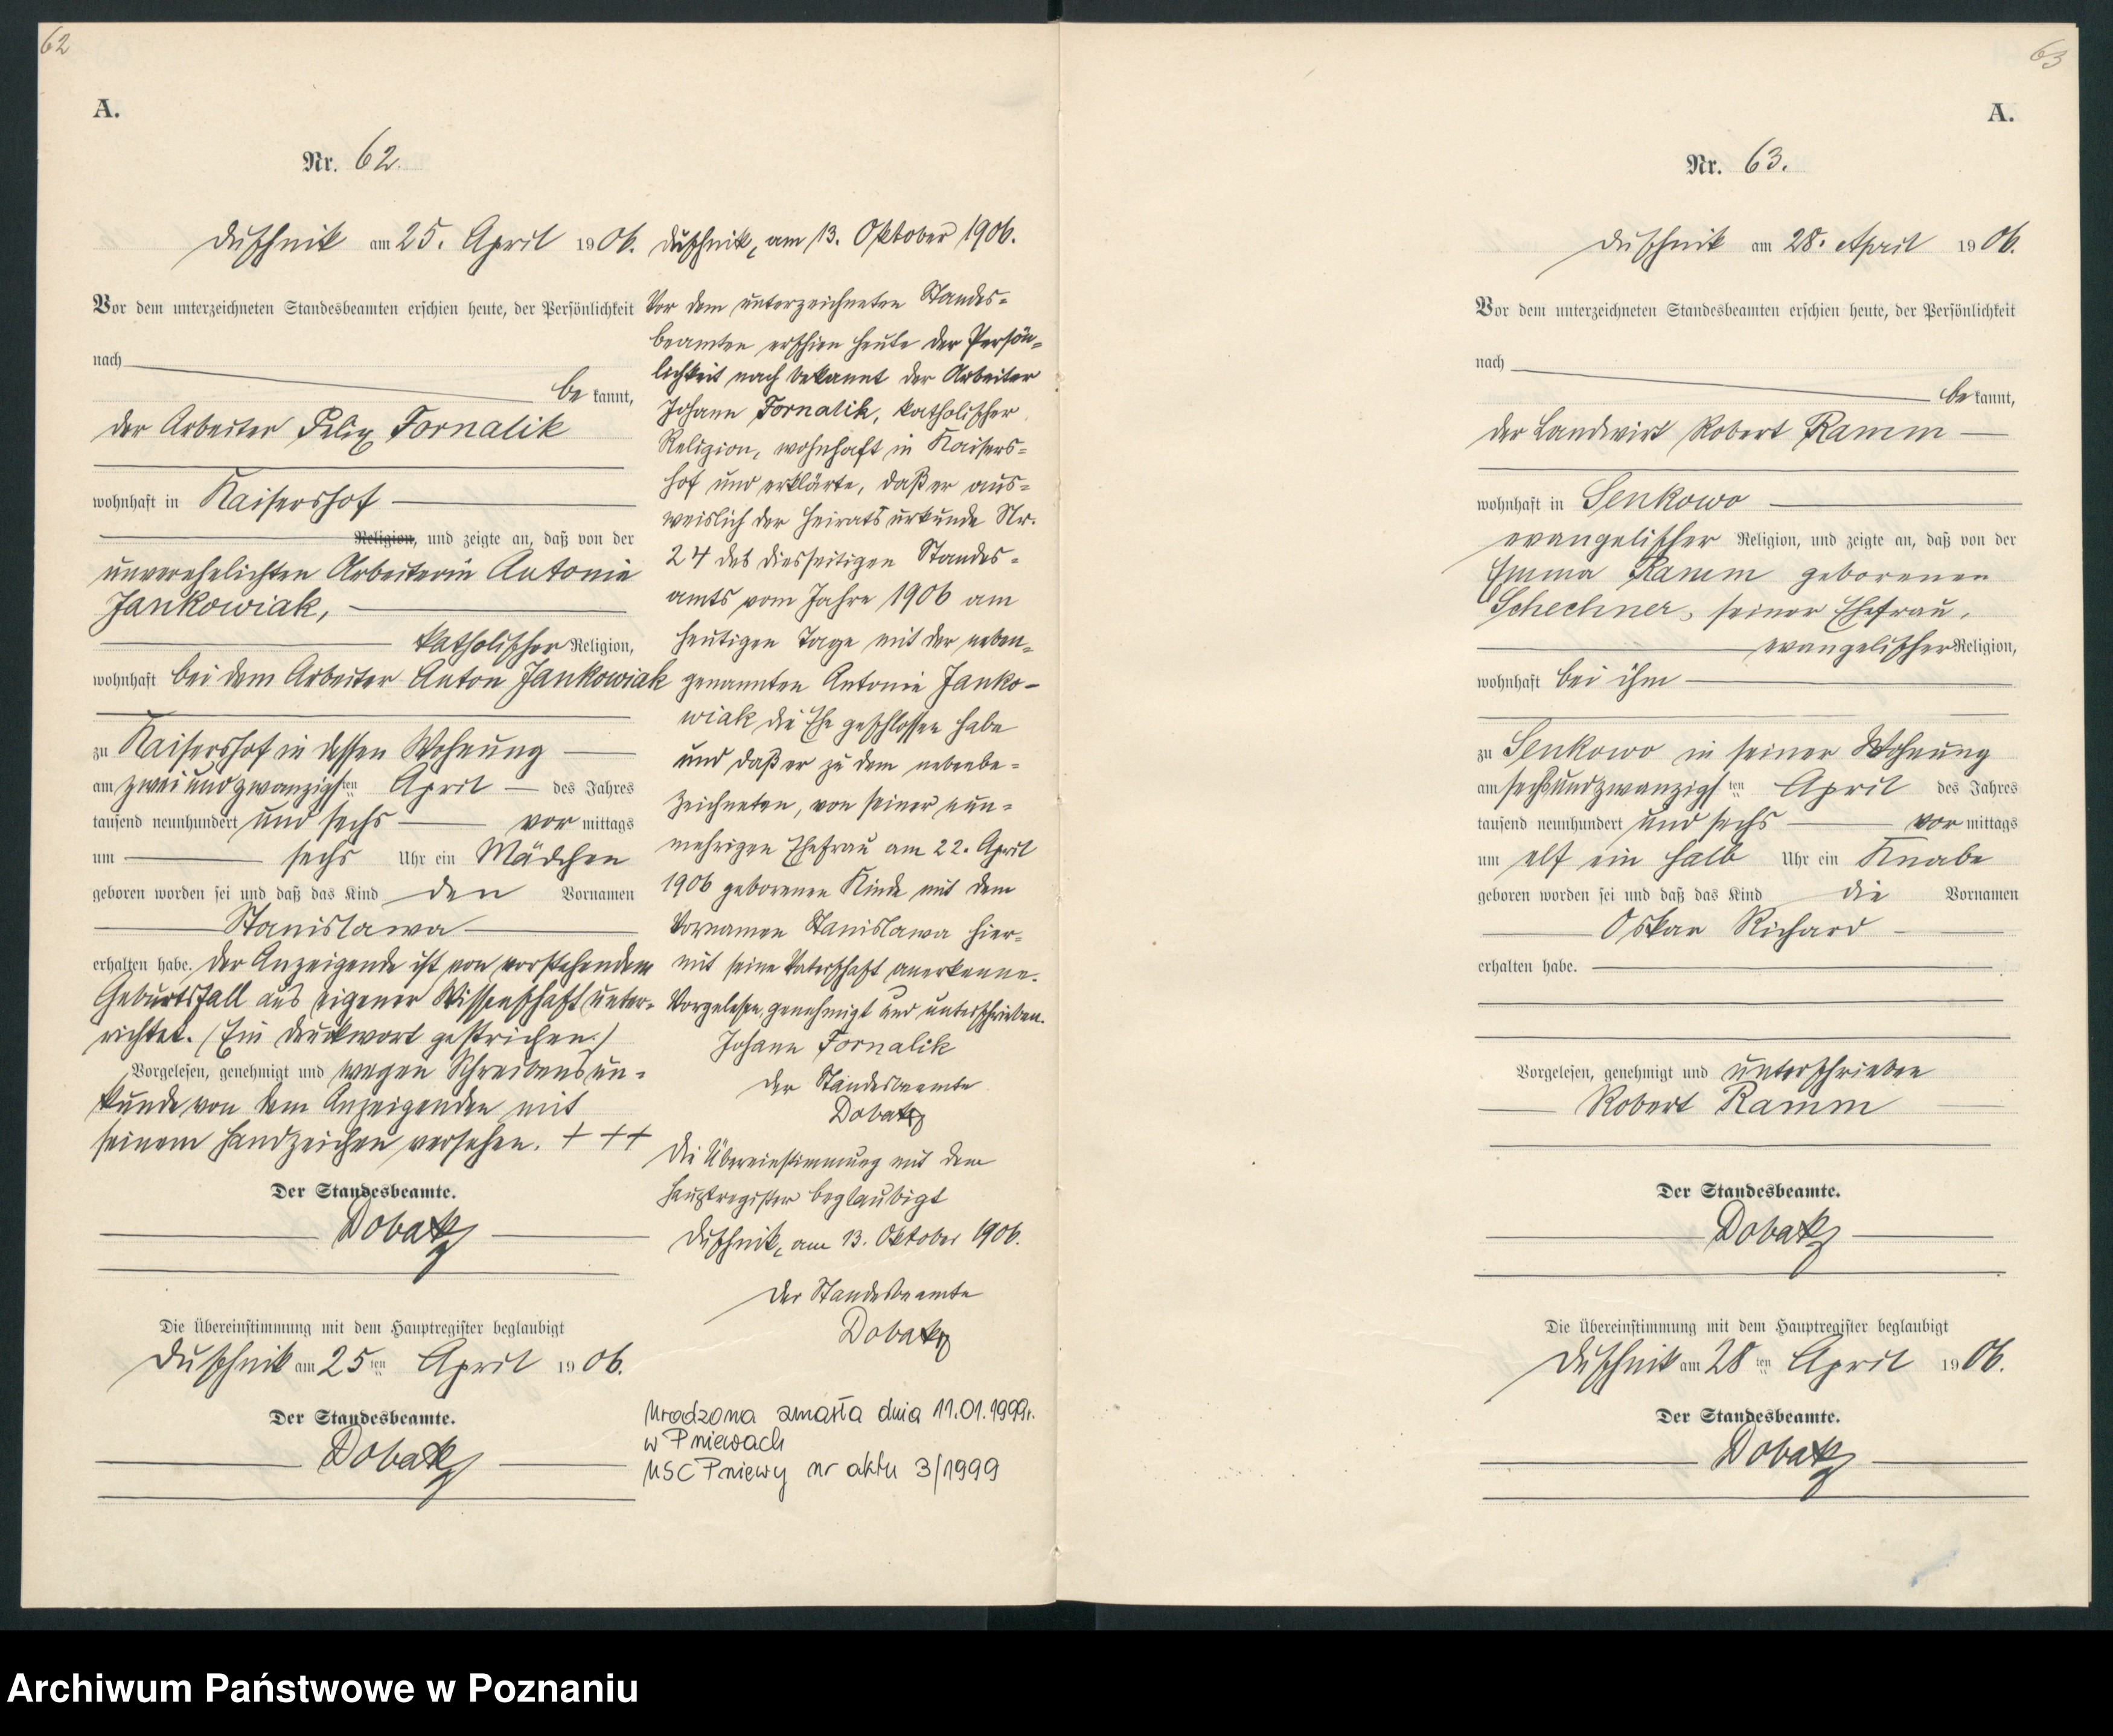 62
A.
Nr. 62.
Duschnik am 25. April 1906.
Vor dem unterzeichneten Standesbeamten erschien heute, der Persönlichkeit
nach
bekannt,
der Arbeiter Felix Fornalik
wohnhaft in Kaisershof
Religion, und zeigte an, daß von der
unverehelichten Arbeiterin Antonie
Jankowiak,
katholischer Religion,
wohnhaft bei dem Arbeiter Anton Jankowiak
zu Kaisershof in dessen Wohnung
am zweiundzwanzigsten April des Jahres
tausend neunhundert und sechs vormittags
um sechs Uhr ein Mädchen
geboren worden sei und daß das Kind den Vornamen
Stanislawa
erhalten habe. Der Anzeigende ist von vorstehendem
Geburtsfall aus eigener Wissenschaft unter-
richtet. (Ein Druckwort gestrichen.)
Vorgelesen, genehmigt und wegen Schreibensun-
kunde von dem Anzeigenden mit
seinem Handzeichen versehen. + + +
Der Standesbeamte.
Dobak
Die Übereinstimmung mit dem Hauptregister beglaubigt
Duschnik am 25ten April 1906.
Der Standesbeamte.
Dobak
Duschnik, am 13. Oktober 1906.
Vor dem unterzeichneten Standes-
beamten erschien heute der Persön-
lichkeit nach bekannt der Arbeiter
Johann Fornalik, katholischer
Religion, wohnhaft in Kaisers-
hof und erklärte, daß er aus-
weislich der Heiratsurkunde Nr.
24 des diesseitigen Standes-
amts vom Jahre 1906 am
heutigen Tage mit der neben-
genannten Antonie Janko-
wiak die Ehe geschlossen habe
und daß er zu dem nebenbe-
zeichneten, von seiner nun-
mehrigen Ehefrau am 22. April
1906 geborenen Kinde mit dem
Vornamen Stanislawa hier-
mit seine Vaterschaft anerkenne.
Vorgelesen, genehmigt und unterschrieben.
Johann Fornalik
Der Standesbeamte
Dobak
Die Übereinstimmung mit dem
Hauptregister beglaubigt
Duschnik, am 13. Oktober 1906.
Der Standesbeamte
Dobak
Urodzona zmarła dnia 11.01.1999r.
w Pniewach
USC Pniewy nr aktu 3/1999
63
A.
Nr. 63.
Duschnik am 28. April 1906.
Vor dem unterzeichneten Standesbeamten erschien heute, der Persönlichkeit
nach
bekannt,
der Landwirt Robert Ramm
wohnhaft in Senkowo
evangelischer Religion, und zeigte an, daß von der
Emma Ramm geborenen
Schechner, seiner Ehefrau,
evangelischer Religion,
wohnhaft bei ihm
zu Senkowo in seiner Wohnung
am sechsundzwanzigsten April des Jahres
tausend neunhundert und sechs vormittags
um elf ein halb Uhr ein Knabe
geboren worden sei und daß das Kind die Vornamen
Oskar Richard
erhalten habe.
Vorgelesen, genehmigt und unterschrieben
Robert Ramm
Der Standesbeamte.
Dobak
Die Übereinstimmung mit dem Hauptregister beglaubigt
Duschnik am 28ten April 1906.
Der Standesbeamte.
Dobak
Archiwum Państwowe w Poznaniu